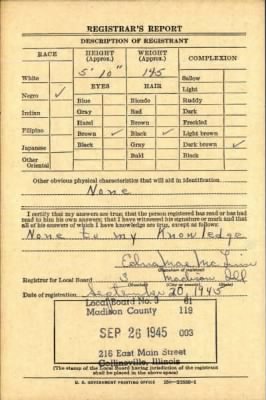 REGISTRAR'S REPORT
DESCRIPTION OF REGISTRANT
RACE
HEIGHT (Approx.)
WEIGHT (Approx.)
COMPLEXION
5' 10"
145
White
Sallow
EYES
HAIR
Light
Negro ✓
Blue
Blonde
Ruddy
Indian
Gray
Red
Dark
Hazel
Brown
Freckled
Filipino
Brown ✓
Black ✓
Light brown
Japanese
Black
Gray
Dark brown ✓
Other Oriental
Bald
Black
Other obvious physical characteristics that will aid in identification.
None
I certify that my answers are true; that the person registered has read or has had
read to him his own answers; that I have witnessed his signature or mark and that
all of his answers of which I have knowledge are true, except as follows:
None to my Knowledge
Edna Mae
(Signature of registrar)
Registrar for Local Board 3 Madison Ill
(Number) (City or county) (State)
Date of registration September 20, 1945
Local Board No. 3 81
Madison County 119
SEP 26 1945 003
216 East Main Street
Collinsville, Illinois
(The stamp of the Local Board having jurisdiction of the registrant
shall be placed in the above space)
U. S. GOVERNMENT PRINTING OFFICE